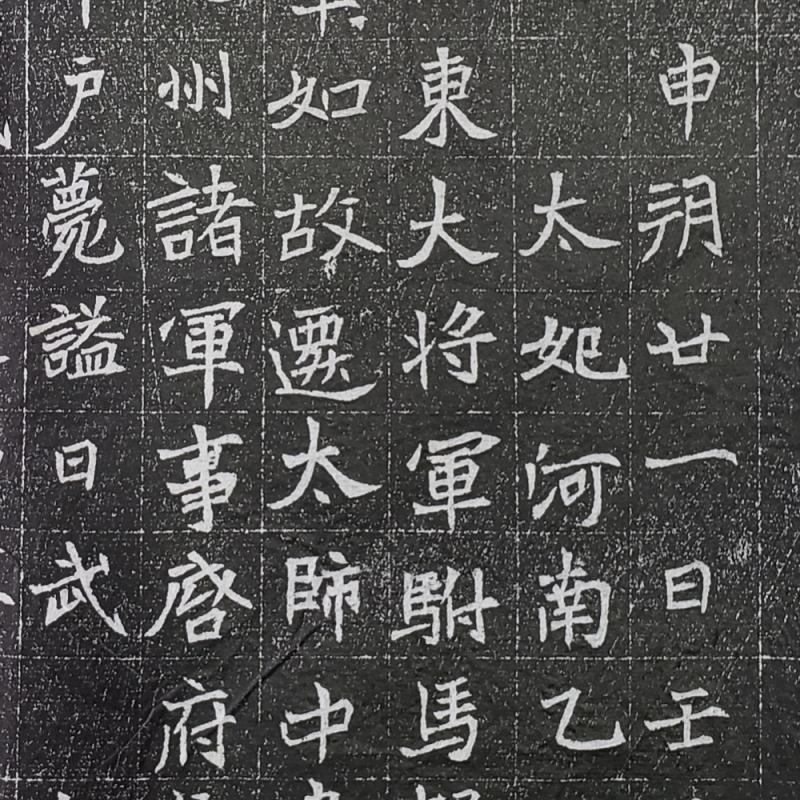 申朔廿一日壬
太妃河南乙
東大将軍駙馬
如故遷太師中
州諸軍事啓府
戶薨謚曰武